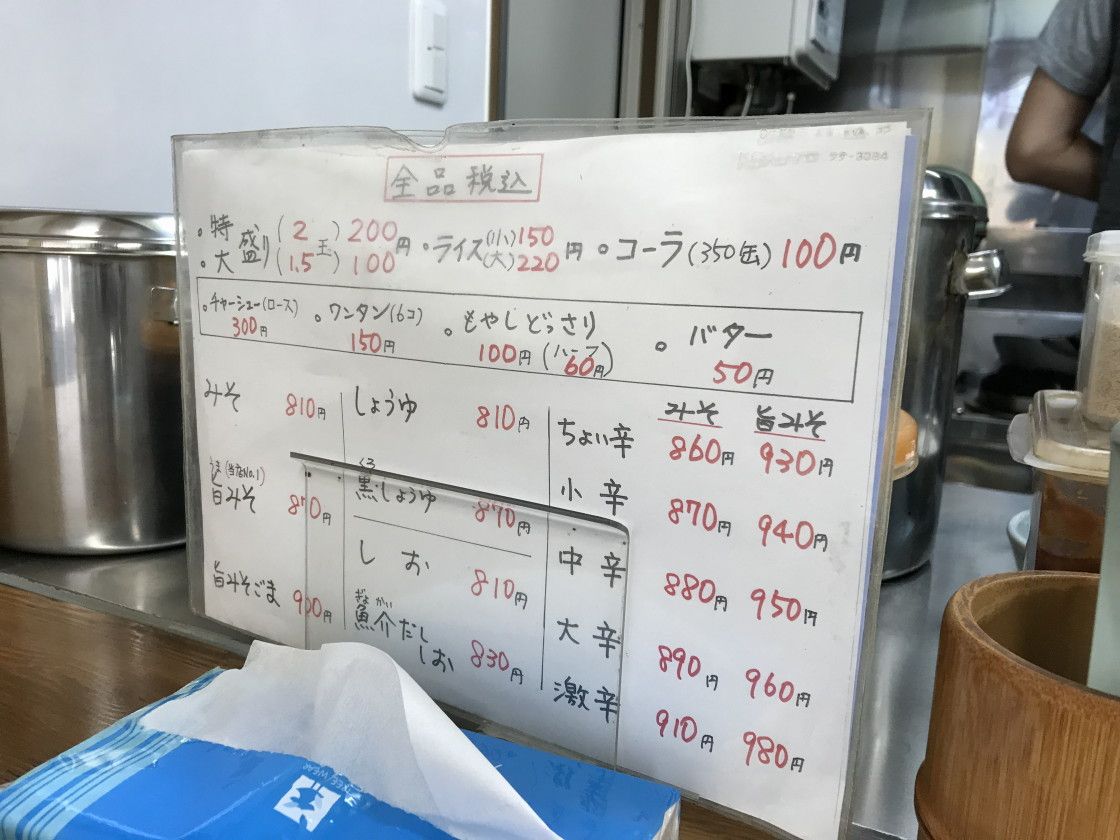 テ9-3384
全品税込
・特盛り(2玉)200円
・大盛り(1.5玉)100円
・ライス(小)150円
(大)220円
・コーラ(350缶)100円
・チャーシュー(ロース)
300円
・ワンタン(6コ)
150円
・もやしどっさり
100円(ハーフ60円)
・バター
50円
みそ 810円
うま(当店No.1)
旨みそ 870円
旨みそごま 900円
しょうゆ 810円
くろ
黒しょうゆ 870円
しお 810円
ぎょかい
魚介だし
しお 830円
みそ 旨みそ
ちょい辛 860円 930円
小辛 870円 940円
中辛 880円 950円
大辛 890円 960円
激辛 910円 980円